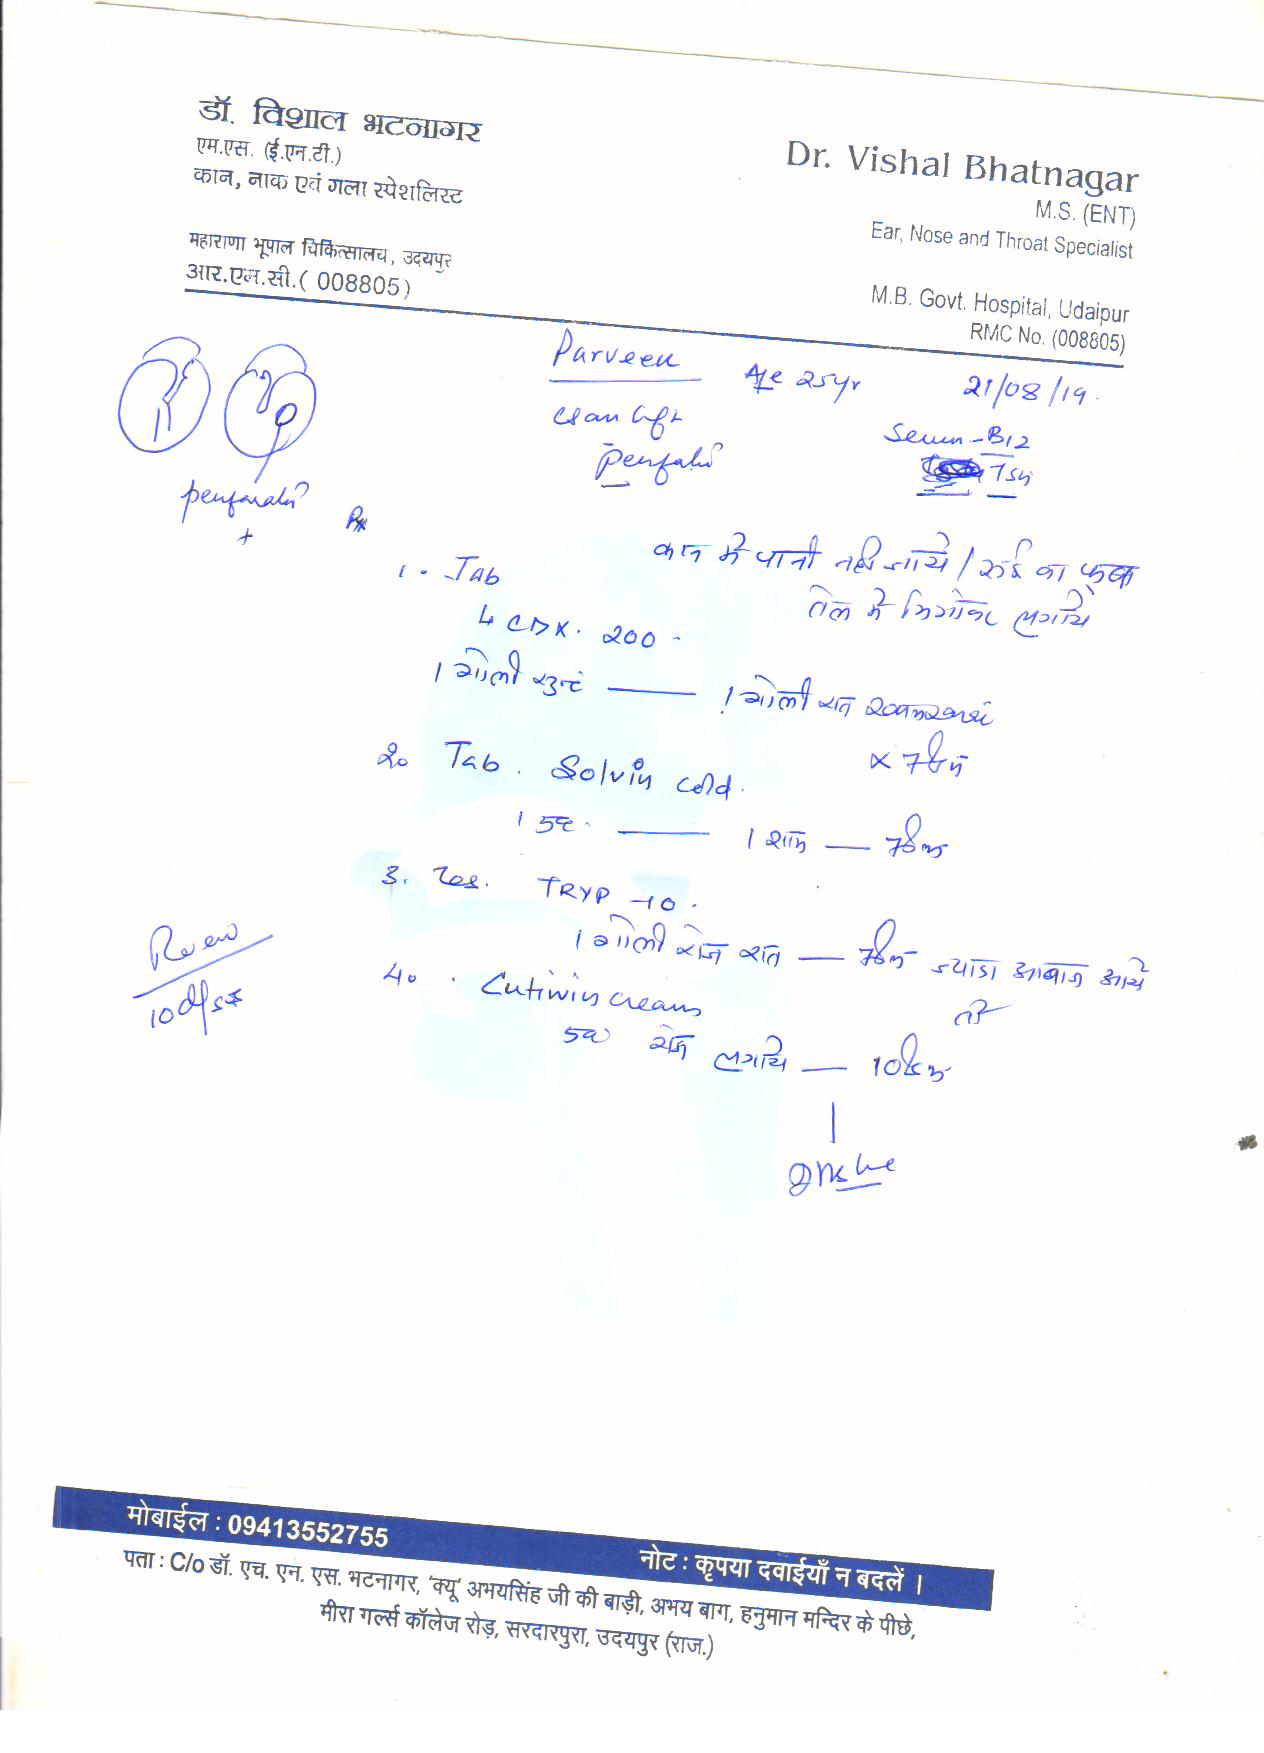 डॉ. विशाल भटनागर
एम.एस. (ई.एन.टी.)
कान, नाक एवं गला स्पेशलिस्ट
महाराणा भूपाल चिकित्सालय, उदयपुर
आर.एल.सी.( 008805)
Dr. Vishal Bhatnagar
M.S. (ENT)
Ear, Nose and Throat Specialist
M.B. Govt. Hospital, Udaipur
RMC No. (008805)
Parveen Age 25yr 21/08/19.
Serum-B12
+
Rx
कान में पानी नहीं जाये / रुई का
तेल में भिगोकर लगाये
1. Tab
CDX. 200.
1 गोली सुबह — 1 गोली रात
x 7 दिन
2. Tab. Solvin Cold.
1 — 1 शाम — 7 दिन
3. Tab. TRYP
1 गोली रोज रात — 7 दिन ज्यादा आवाज आये
तो
4. Cutiwin cream
रोज लगाये — 10 दिन
Review
10 days
मोबाईल : 09413552755
नोट : कृपया दवाईयाँ न बदलें ।
पता : C/o डॉ. एच. एन. एस. भटनागर, 'क्यू' अभयसिंह जी की बाड़ी, अभय बाग, हनुमान मन्दिर के पीछे,
मीरा गर्ल्स कॉलेज रोड़, सरदारपुरा, उदयपुर (राज.)